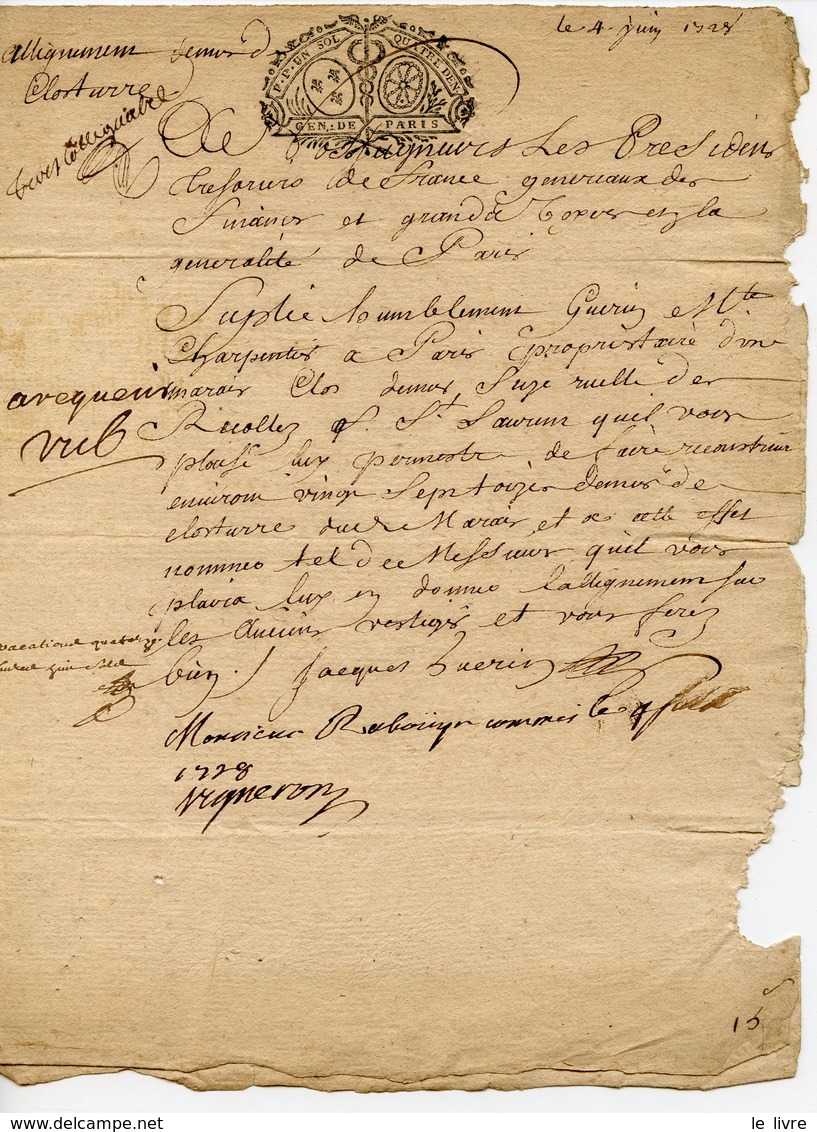 le 4 juin 1728
allignement demur de
Closturre
P.P. UN SOL QUATRE DEN.
GEN. DE PARIS
A Nosseigneurs Les Presidens
Tresoriers de France generaux des
Finances et grands Voyers en la
generalité de Paris
Suplie humblement Guerin Mte
Charpentier a Paris proprietaire dun
marais Clos demurs Size ruelle des
Recollez f. St. Laurens quil vous
plaise luy permestre de faire reconstruire
environ vingt sept toizes demur de
closturre dud. Marais et a cette effet
nommer tel de Messieurs quil vous
plaira luy en donner lallignement sur
les anciens vestiges et vous ferez
bien / Jacques Guerin
vacations quatorze
Monsieur commis le 4 juin
1728
Vigneron
15
le livre